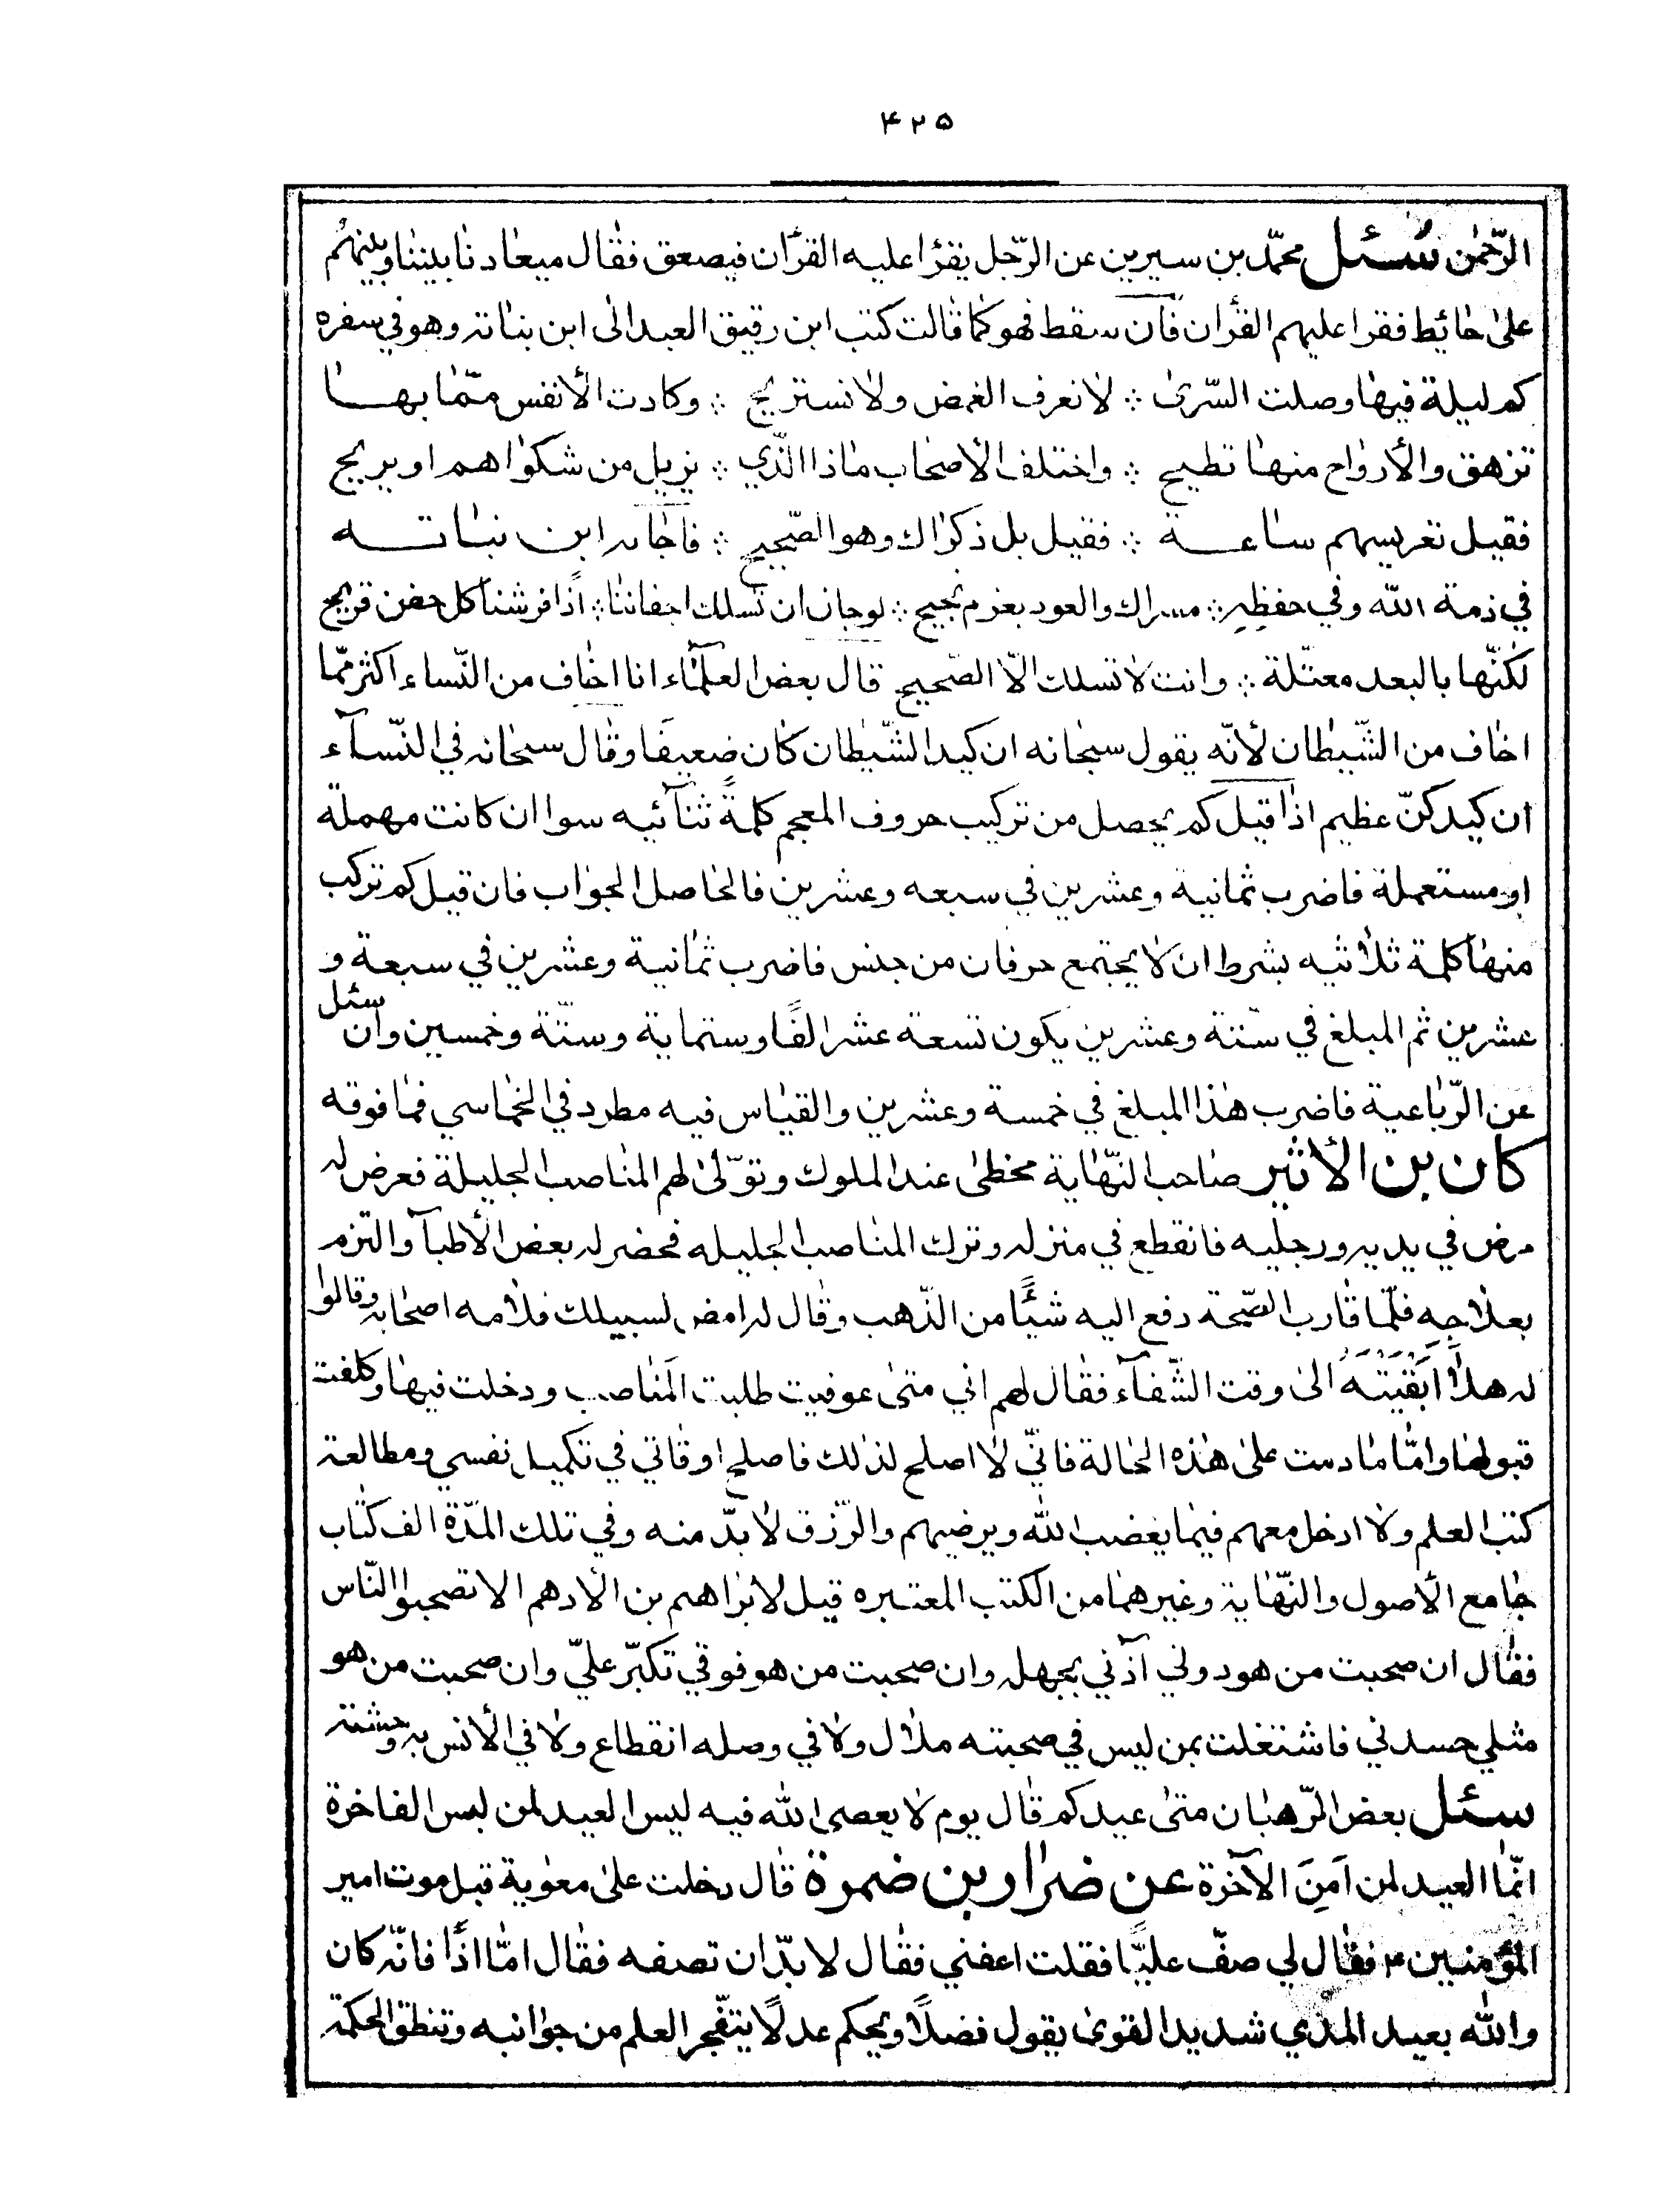 ۴۲۵
الرّحمٰن سُئل محمّد بن سيرين عن الرّجل يقرٔا عليه القرٔان فيصعق فقٰال ميعٰادنٰا بيننٰا وبينهُم
علىٰ حٰائط فقرا عليهم القرٔان فٰان سقط فهو كمٰا قٰالت كتب ابن رقيق العبد الى ابن بنٰاته وهو في سفره
كم ليلة فيهٰا وصلت السّرىٰ ∴ لٰا نعرف الغمض ولٰا نستريح ∴ وكادت الأنفس ممّا بهــا
تزهق والأروٰاح منهٰا تطيح ∴ واختلف الأصحٰاب مٰاذا الّذي ∴ يزيل من شكوٰاهم او يريح
فقيل تعريسهم سٰاعــة ∴ فقيل بل ذكرٰاك وهو الصّحيح ∴ فاجٰابه ابن نبٰاتــه
في ذمة الله وفي حفظِهِ ∴ مسراك والعود بعزم نجيح ∴ لو جاز ان تسلك اجفاننٰا ∴ اذًا فرشنٰا كل جفن قريح
لكنّها بالبعد معتلّة ∴ وانت لٰا تسلك الّا الصّحيح قال بعض العلمٰآء انا اخٰاف من النّساء اكثر ممّا
اخٰاف من الشّيطٰان لأنّه يقول سبحٰانه ان كيد الشّيطٰان كٰان ضعيفًا وقٰال سبحٰانه في النّسآء
ان كيدكنّ عظيم اذٰا قيل كم يحصل من تركيب حروف المعجم كلمةً ثنآئيه سوا ان كانت مهملة
او مستعملة فاضرب ثمانية وعشرين في سبعه وعشرين فالحٰاصل الجوٰاب فان قيل كم تركب
منهٰا كلمة ثلٰاثيه بشرط ان لٰا يجتمع حرفان من جنس فاضرب ثمٰانية وعشرين في سبعة و
عشرين ثم المبلغ في ستّة وعشرين يكون تسعة عشر الفًا وستماية وستّة وخمسين وان سئل
عن الرّبٰاعية فاضرب هٰذا المبلغ في خمسة وعشرين والقيٰاس فيه مطرد في الخمٰاسي فمٰا فوقه
كان بن الأثير صٰاحب النّهٰاية محظىٰ عند الملوك وتوّلىٰ لهم المنٰاصب الجليلة فعرض له
مرض في يديه ورجليه فانقطع في منزله وترك المنٰاصب الجليله فحضر له بعض الأطبآ والتزم
بعلٰاجِهِ فلمّا قٰارب الصّحة دفع اليه شيئًا من الذّهب وقٰال له امض لسبيلك فلٰامه اصحٰابه وقالوٰا
له هلّٰا اَبْقَيْتَهُ الىٰ وقت الشّفآء فقٰال لهم اني متىٰ عوفيت طلبت المنٰاصب ودخلت فيهٰا وكلفت
قبولهٰا وامّا مٰا دمت علىٰ هٰذه الحٰالة فانّي لٰا اصلح لذلك فاصلح اوقٰاتي في تكميل نفسي ومطالعة
كتب العلم ولٰا ادخل معهم فيمٰا يغضب الله ويرضيهم والرّزق لٰا بدّ منه وفي تلك المدّة الف كتٰاب
جٰامع الأصول والنّهٰاية وغيرهمٰا من الكتب المعتبره قيل لابرٰاهيم بن الادهم الا تصحب النّاس
فقٰال ان صحبت من هو دوني آذٰني بجهله وان صحبت من هو فوقي تكبّر عليّ وان صحبت من هو
مثلي حسدني فاشتغلت بمن ليس في صحبته ملٰال ولٰا في وصله انقطاع ولٰا في الأنس به وحشته
سئل بعض الرّهبٰان متىٰ عيدكم قٰال يوم لٰا يعصى الله فيه ليس العيد لمن لبس الفاخرة
انّمٰا العيد لمن اَمِنَ الآخرة عن ضرٰار بن ضمرة قٰال دخلت علىٰ معٰوية قبل موت امير
المؤمنين ۴ فقٰال لي صفّ عليًّا فقلت اعفني فقٰال لا بدّ ان تصفه فقٰال امّا اذًا فانّه كان
والله بعيد المدي شديد القوىٰ يقول فضلًا ويحكم عدلًا يتفّجر العلم من جوٰانبه وتنطق الحكمة